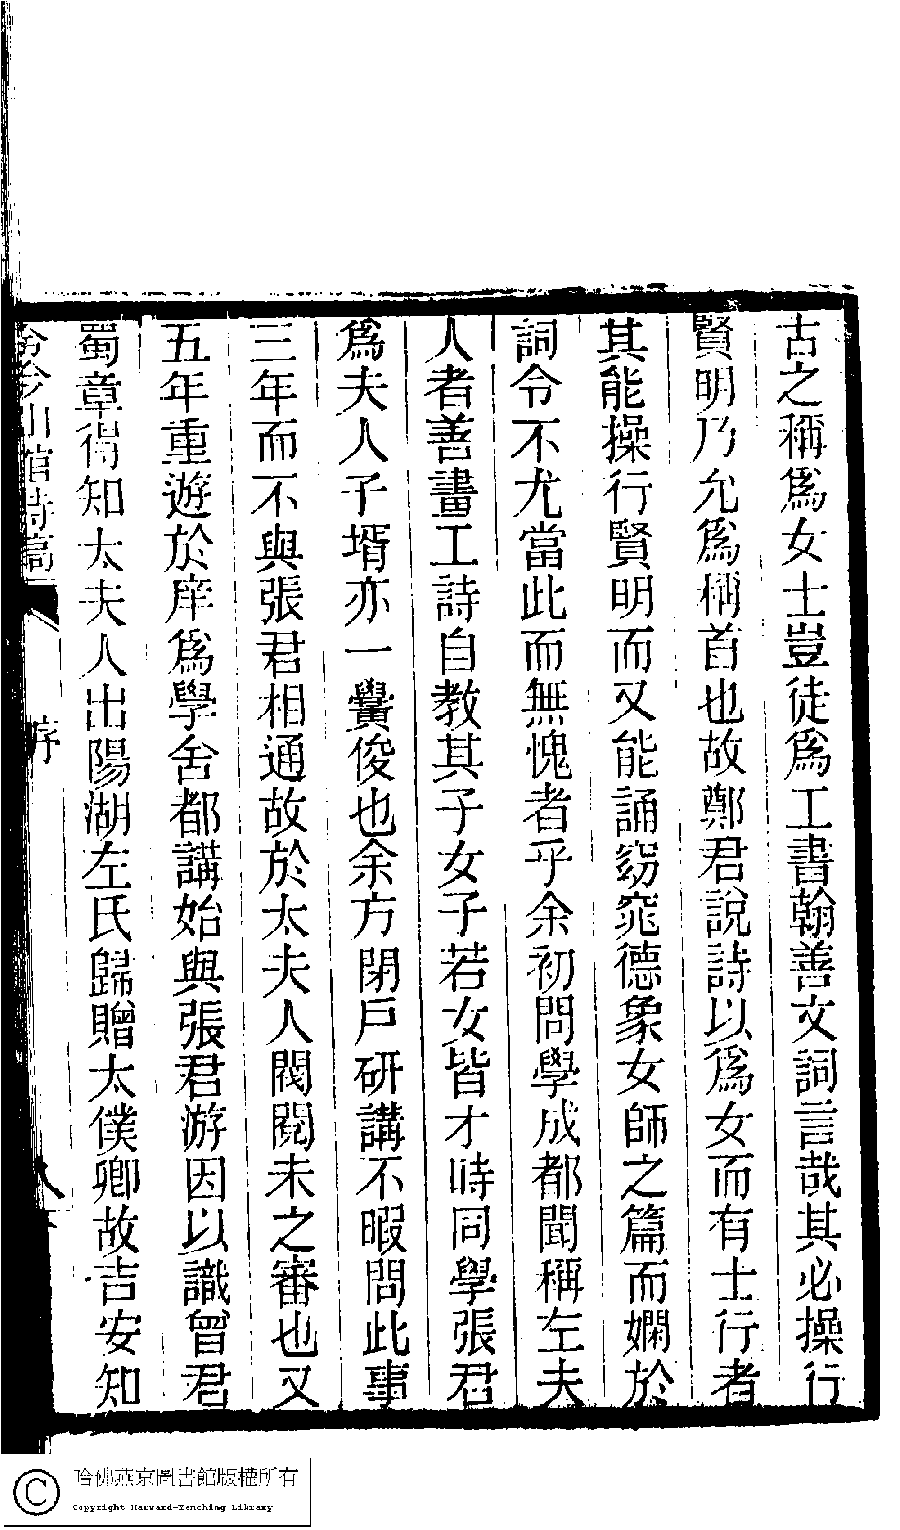 古之稱爲女士豈徒爲工書翰善文詞言哉其必操行
賢明乃允爲稱首也故鄭君說詩以爲女而有士行者
其能操行賢明而又能誦窈窕德象女師之篇而嫻於
詞令不尤當此而無愧者乎余初問學成都聞稱左夫
人者善畫工詩自教其子女子若女皆才時同學張君
爲夫人子壻亦一黌俊也余方閉戸研講不暇問此事
三年而不與張君相通故於太夫人閥閱未之審也又
五年重遊於庠爲學舍都講始與張君游因以識曾君
蜀章得知太夫人出陽湖左氏歸贈太僕卿故吉安知
冷吟山館詩稿
序
八
哈佛燕京圖書館版權所有
Copyright Harvard-Yenching Library